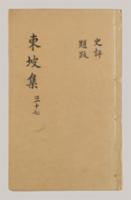 史評
題跋
東坡集
三十七